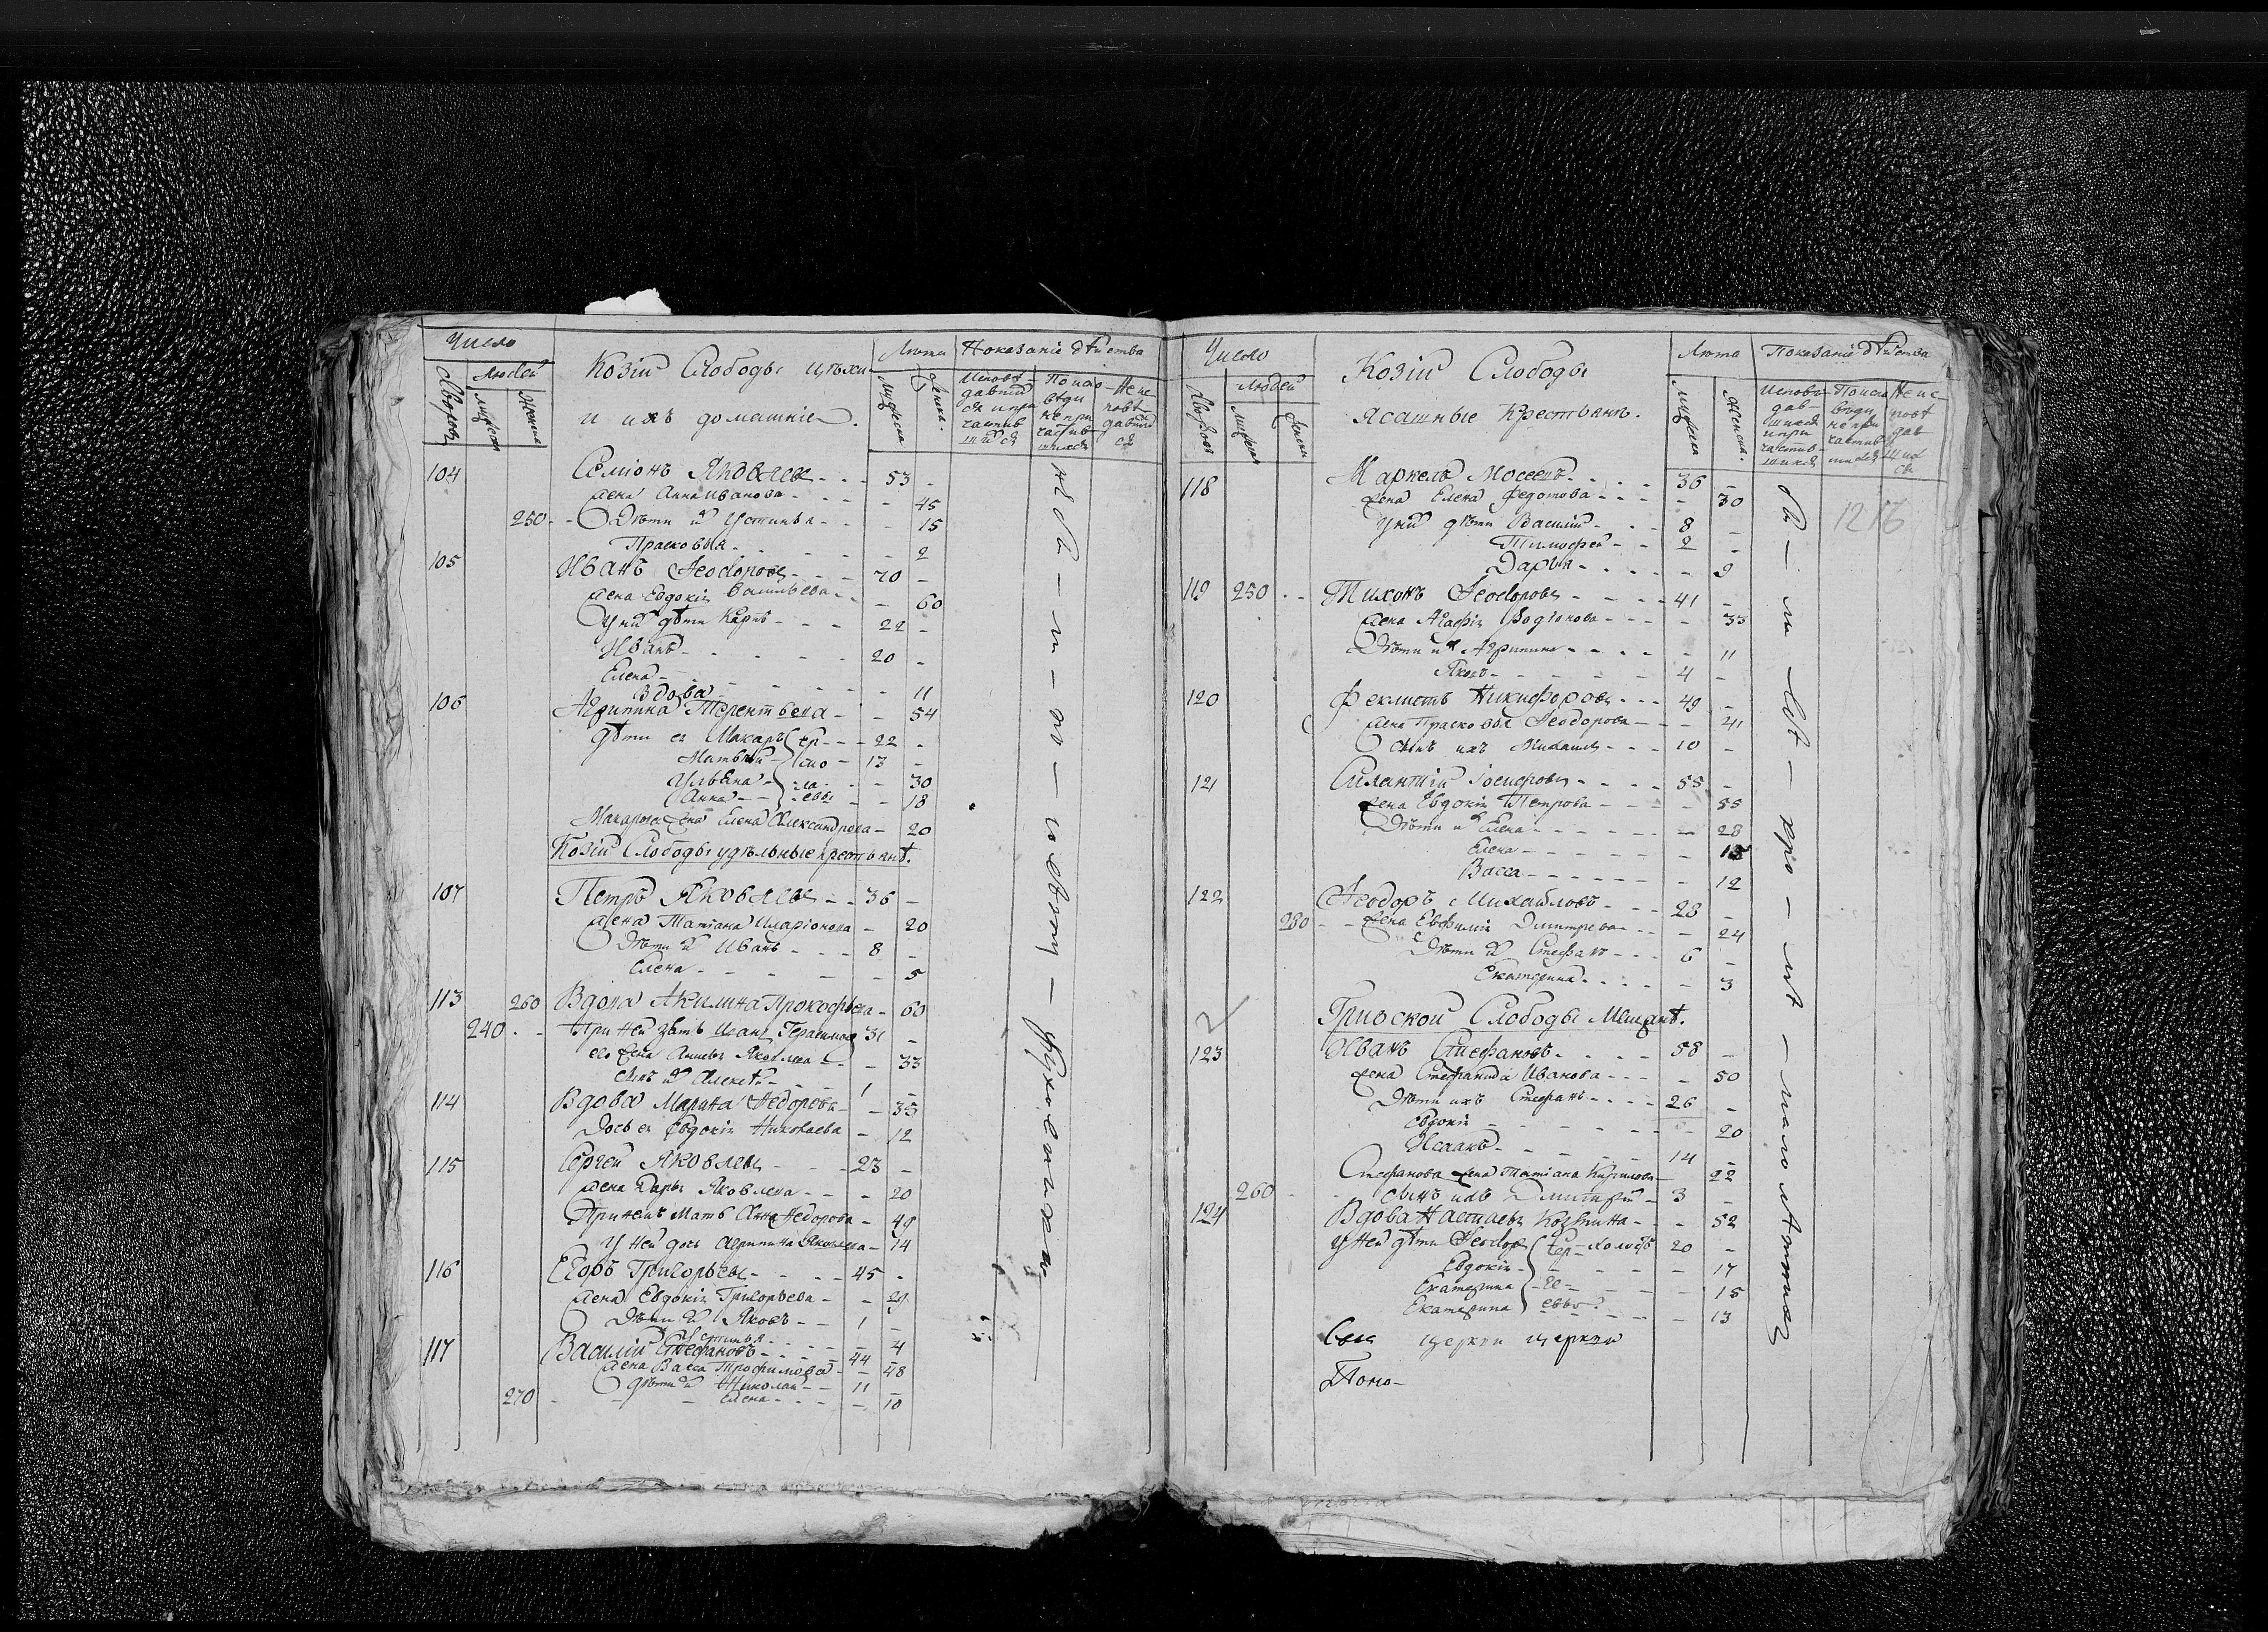 Число
Людей
Дворовъ
мужеска
женска
Козіи Слободы цѣхи
и ихъ домашніе.
Лѣта
мужеска
женска.
Показаніе дѣйства
Исповѣ
давшій
ся и при
частив
шійся
Поиспо
вѣди
непри
частив
шихся
Неис
повѣ
давшій
ся
104 Семіонъ Яковлевъ - - - 53 -
жена Анна Иванова - - - - 45
250 - - Дѣти ихъ Устинья - - - 15
Прасковья - - - - 2
105 Иванъ Ѳеодоровъ - - - 70 -
жена Евдокія Васильева - - - 60
У нихъ дѣти Карпъ - - - 22 -
Иванъ - - - - 20 -
Елена - - - - - 11
106 Вдова
Агрипина Терентьева - - 54
дѣти ея Макаръ - - - 22 -
Матвѣй - 13 -
Ульяна - - 30
Анна - - - 18
Макарова жена Елена Александрова - 20
Козіи Слободы удѣльные крестьянѣ.
107 Петръ Яковлевъ - - 36 -
жена Татіана Иларіонова - 20
Дѣти ихъ Иванъ - - - 8 -
Елена - - - - - 5
113 260 Вдова Акилина Прокофьева - 60
240 - - При ней зять Исаакъ Герасимовъ 31 -
его жена Яковлева - - 33
сынъ ихъ Алексѣй - - 1 -
114 Вдова Марина Ѳедорова - - 35
Дочь ея Евдокія Николаева - 12
115 Сергей Яковлевъ - - - 23 -
жена Дарья Яковлева - - - 20
При немъ Мать Анна Ѳедорова - 49
У ней дочь Агрипина Яковлева - 14
116 Егоръ Григорьевъ - - - - 45 -
жена Евдокія Григорьева - - 29
Дѣти ихъ Яковъ - - 1 -
Устинья - - - - 4
117 Василій Стефановъ - - - 44 -
жена Васса Трофимова - - 48
дѣти ихъ Николай - - 11 -
270 - - - Елена - - - - 10
Число
Людей
Дворовъ
мужеска
женска
Козіи Слободы
Ясашные Крестьянѣ.
Лѣта
мужеска
женска.
Показаніе дѣйства
Исповѣ-
дав-
шихся
и при
частив-
шихся
Поиспо
вѣди
непри
частив
шихся
Неис-
повѣ
дав
ших
ся
1216
118 Маркелъ Мосеевъ - - - - 36 -
жена Елена Федотова - - - - 30
У нихъ дѣти Василій - - - 8 -
Тимофей - - 2 -
Дарья - - - - - 9
119 250 - - Тихонъ Ѳеодоровъ - - - - 41 -
жена Агафія Родіонова - - - - 33
Дѣти ихъ Агрипина - - - - - 11
Яковъ - - - - 4 -
120 Феклистъ Никифоровъ - - - 49 -
жена Прасковья Ѳеодорова - - - 41
Сынъ ихъ Михаилъ - - - 10 -
121 Силантій Іосифовъ - - - - 55 -
жена Евдокія Петрова - - - - 55
Дѣти ихъ Елена - - - - - - 28
Елена - - - - - - 15
Васса - - - - - - 12
122 Ѳеодоръ Михайловъ - - - 28 -
280 - - жена Евфимія Димитрева - - - 24
Дѣти ихъ Стефанъ - - - 6 -
Екатерина - - - - - 3
Слободы Мещанѣ.
123 Иванъ Стефановъ - - - - 58 -
жена Стефанида Иванова - - - - 50
Дѣти ихъ Стефанъ - - - - 26 -
Евдокія - - - - - - 20
Исаакъ - - - - - 14 -
Стефанова жена Татіана Кирилова - 22
260 - - сынъ ихъ Димитрій - 3 -
124 Вдова Настасья Козмина - - - 52
У ней дѣти Ѳеодоръ 20 -
Евдокія - - - - - 17
Екатерина - - - - 15
Екатерина - - - 13
Сея церкви церкви
Поно-